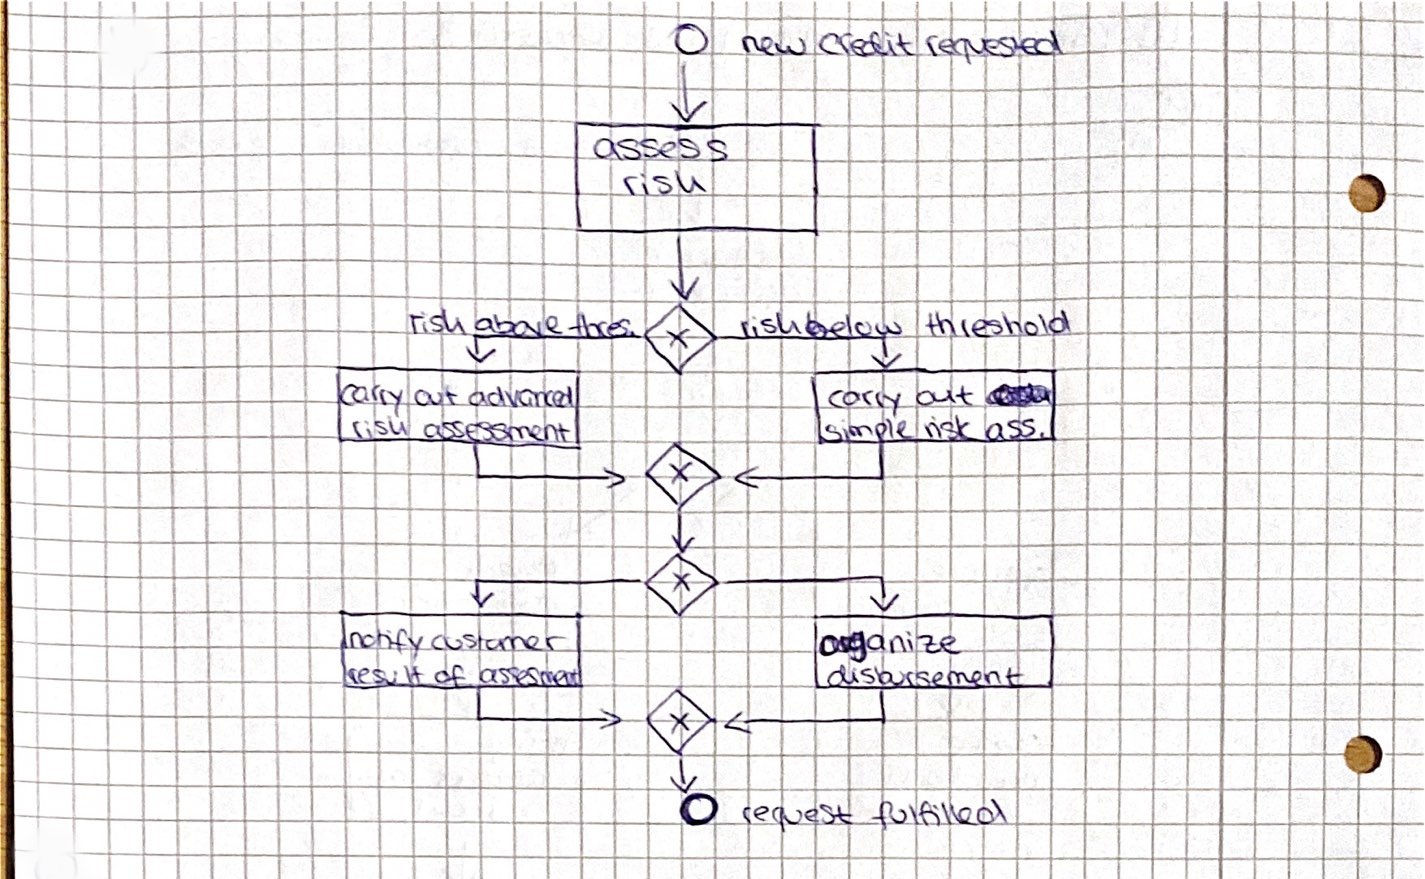 new credit requested
assess
risk
risk above thres.
risk below threshold
carry out advanced
risk assessment
carry out
simple risk ass.
notify customer
result of assesment
organize
disbursement
request fulfilled